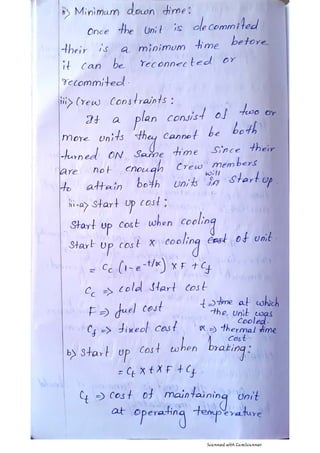 ii) Minimum down time:
Once the Unit is decommited
their is a minimum time before
it can be reconnected or
recommited.
iii) Crew Constraints :
If a plan consist of two or
more units they cannot be both
turned ON Same time Since their
are not enough Crew members
will
to attain both units in Start up.
iii-a) Start up cost :
Start up cost when cooling
Start up cost x cooling cost of unit.
= Cc (1-e^-t/α) x F + Cf
Cc => cold Start cost
F => fuel cost t => time at which
the, unit was
Cooled
Cf => fixed cost α => thermal time
cost
b) Start up cost when braking:
= Ct x t x F + Cf
Ct => Cost of maintaining unit
at operating temperature
Scanned with CamScanner